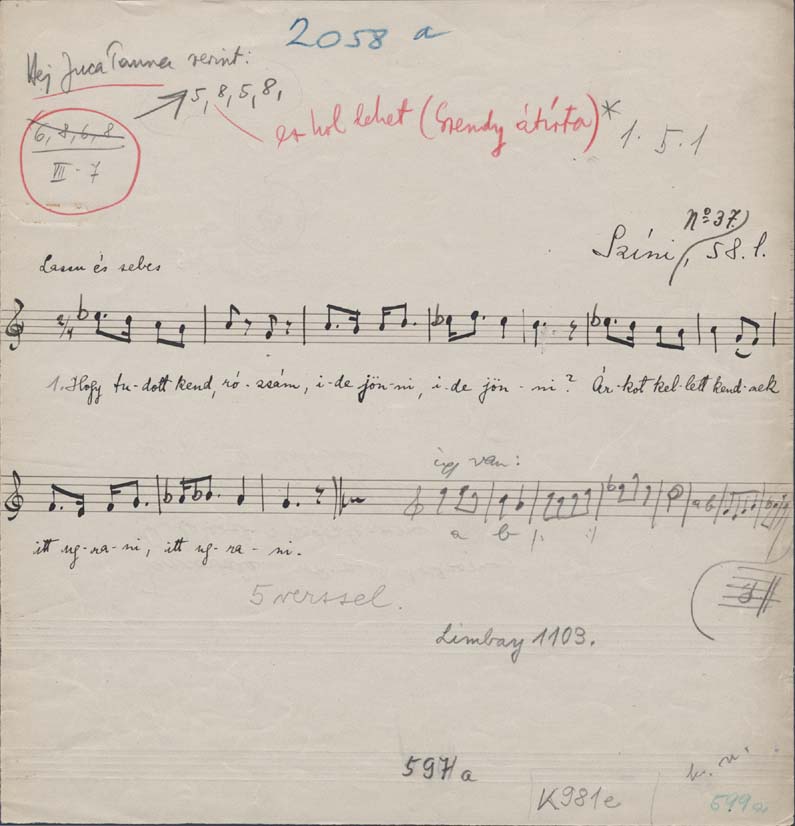 2058 a
Hej Juca Panna szerint:
5, 8, 5, 8,
ez hol lehet (Szendy átírta)* 1. 5. 1
6, 8, 6, 8
VII - 7
No 37.)
Színi, 58. l.
Lassu és sebes
2/4
1. Hogy tu-dott kend, ró-zsám, i-de jön-ni, i-de jön-ni? Ár-kot kel-lett kend-nek
így van:
a b
itt ug-ra-ni, itt ug-ra-ni.
5 verssel.
Limbay 1103.
597/a
K981e
599a